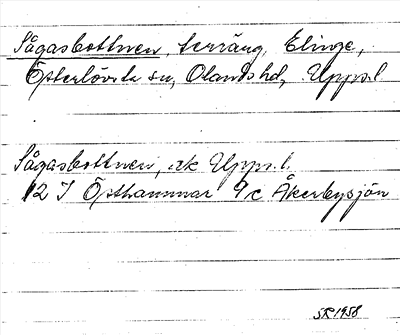 Sågasbottnen, terräng, Elinge,
Österlövsta sn, Olands hd, Upps.l.
Sågasbottnen, ek Upps.l.
12 I Östhammar 9c Åkerbysjön
SR 1958